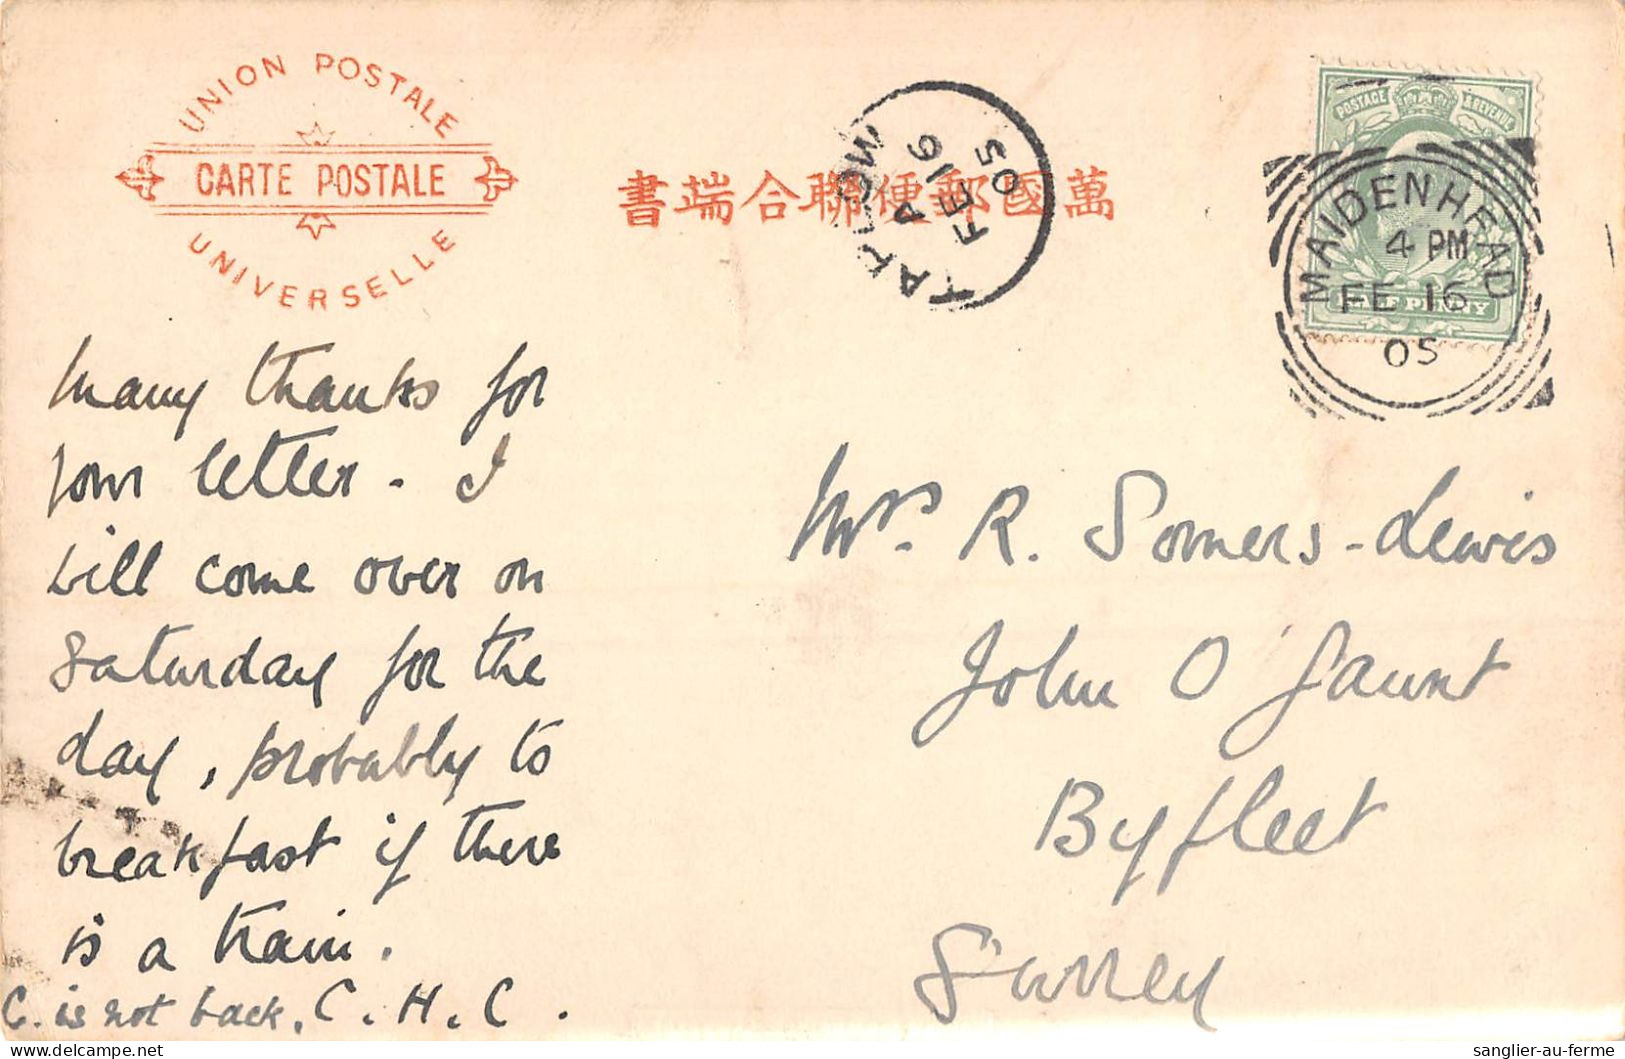 UNION POSTALE
CARTE POSTALE
UNIVERSELLE
萬國郵便聯合端書
TAPLOW
A
FE 16
05
POSTAGE & REVENUE
HALF PENNY
MAIDENHEAD
4 PM
FE 16
05
Many thanks for
your letter. I
will come over on
Saturday for the
day, probably to
breakfast if there
is a train.
C. is not back. C. H. C.
Mrs. R. Somers-Lewis
John O' Gaunt
Byfleet
Surrey
sanglier-au-ferme